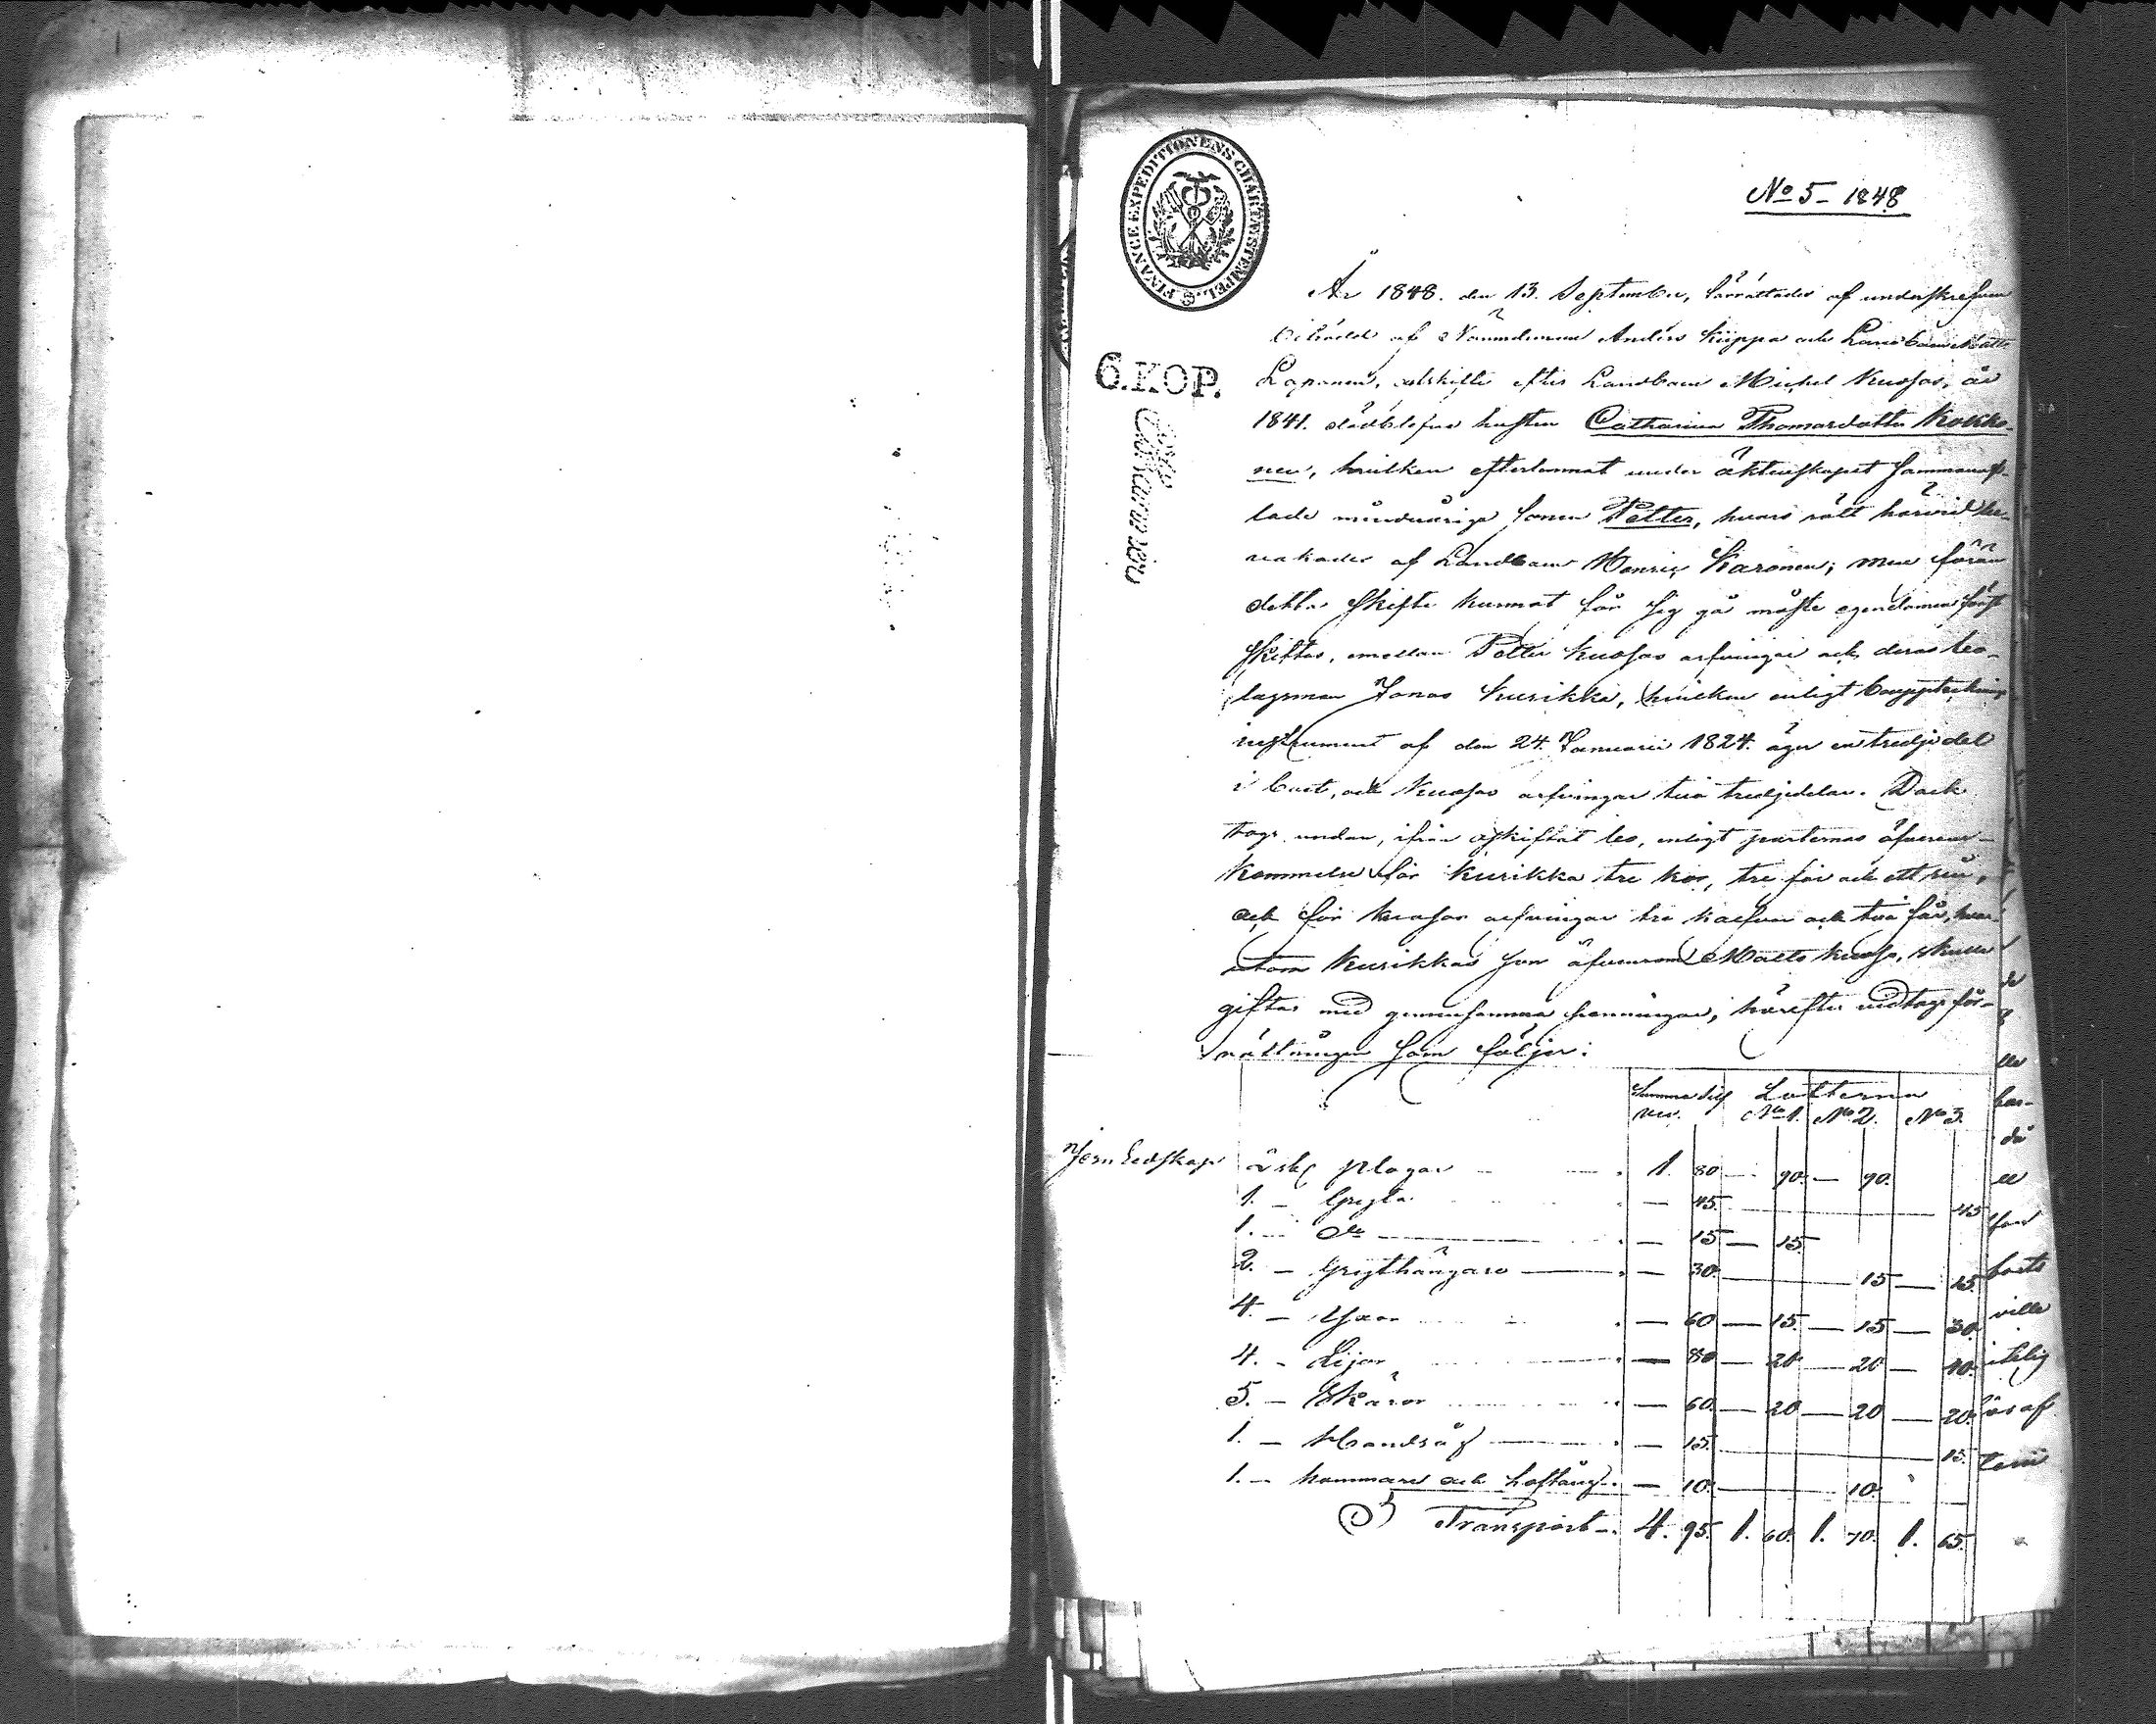 No 5 - 1848
FINANCE EXPEDITIONENS CHARTÆSTEMPEL.
År 1848. den 13. September, förrättades af underskrefven
biträdd af Nämndeman Anders Kiippa och Landbonden Matts
6. KOP. Laponen, arfskifte efter Landbon Michel Kuosas, år
1841. aflidne hustru Catharina Thomasdotter Kokko-
nen, hvilken efterlemnat under äktenskapet sammanaf-
lade minderåriga sonen Petter, hvars rätt härvid be-
vakades af Landbon Henric Karonen; men förän
detta skifte kunnat för sig gå måste egendomen först
skiftas, emellan Petter Kuosas arfvingar och deras bo-
lagsman Jonas Kurikka, hvilken enligt bouppteckning
instrument af den 24. Januarii 1824. äger en tredjedel
i boet, och Kuosas arfvingar två tredjedelar. Dock
togs undan, ifrån oskiftat bo, enligt parternas öfverens-
kommelse för Kurikka tre kor, tre får och ett
och för Kuosas arfvingar tre kalfvar och två får, hvar-
utom Kurikkas son äfvensom Matts Kuosa, skulle
giftas med gemensamma penningar, härefter vidtogs för-
rättningen som följer:
Summa Silf Lotterna
ver. No 1. No 2. No 3.
Jern Redskap 2 sk plogar 1. 80 — 90. — 90.
1. — Gryta — 45. 45
1. — Do — 15 — 15.
2. — Grythängare — 30. 15 — 15
4. — Yxor — 60 — 15. — 15 — 30.
4. — Lijor — 80 — 20 — 20 — 40.
5. — Skäror — 60. — 20 — 20 — 20.
1. — Handsåg — 15. 15.
1. — hammare och hoftång — 10. 10.
Transport 4. 95. 1. 60. 1. 70. 1. 65.